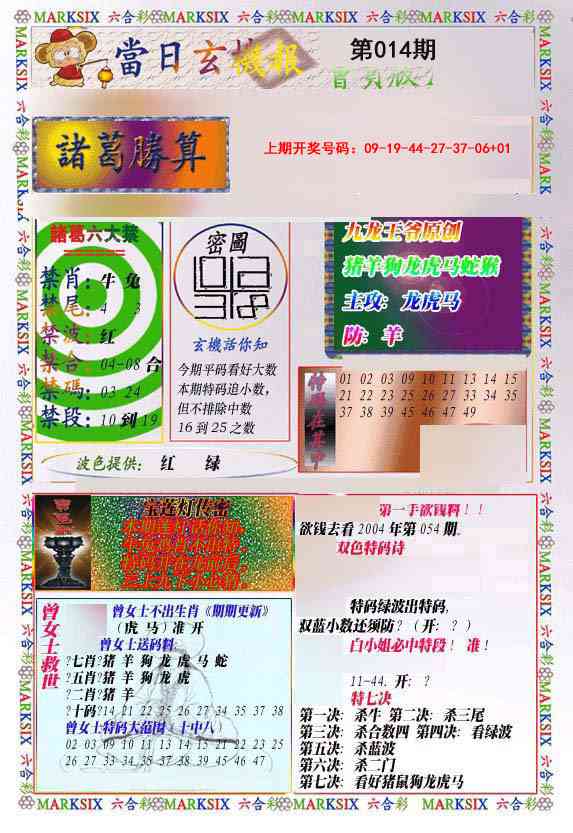 MARKSIX 六合彩 MARKSIX 六合彩 MARKSIX 六合彩 MARKSIX 六合彩
當日玄機報 第014期
諸葛勝算
上期开奖号码：09-19-44-27-37-06+01
諸葛六大禁
禁肖：牛 兔
禁尾：4 3
禁波：红
禁合：04-08 合
禁碼：03 24
禁段：10 到 19
密圖
玄機話你知
今期平码看好大数
本期特码追小数，
但不排除中数
16 到 25 之数
九龙王爷原创
猪羊狗龙虎马蛇猴
主攻：龙虎马
防：羊
01 02 03 09 10 11 13 14 15
21 22 23 25 26 27 33 34 35
37 38 39 45 46 47 49
波色提供： 红 绿
宝莲灯传密
第一手欲钱料！！
欲钱去看 2004 年第 054 期。
双色特码诗
特码绿波出特码，
双蓝小数还须防？（开：？）
白小姐必中特段！ 准！
11-44. 开：？
特七决
第一决：杀牛 第二决：杀三尾
第三决：杀合数四 第四决：看绿波
第五决：杀蓝波
第六决：杀二门
第七决：看好猪鼠狗龙虎马
曾女士救世
曾女士不出生肖《期期更新》
（虎 马）准 开
曾女士送码料
?七肖?猪 羊 狗 龙 虎 马 蛇
?五肖?猪 羊 狗 龙 虎
?二肖?猪 羊
?十码?14 21 22 25 26 27 34 35 37 38
曾女士特码大范围（十中八）
02 03 09 10 11 13 14 15 21 22 23 25
26 27 33 34 35 37 38 39 45 46 47
MARKSIX 六合彩 MARKSIX 六合彩 MARKSIX 六合彩 MARKSIX 六合彩